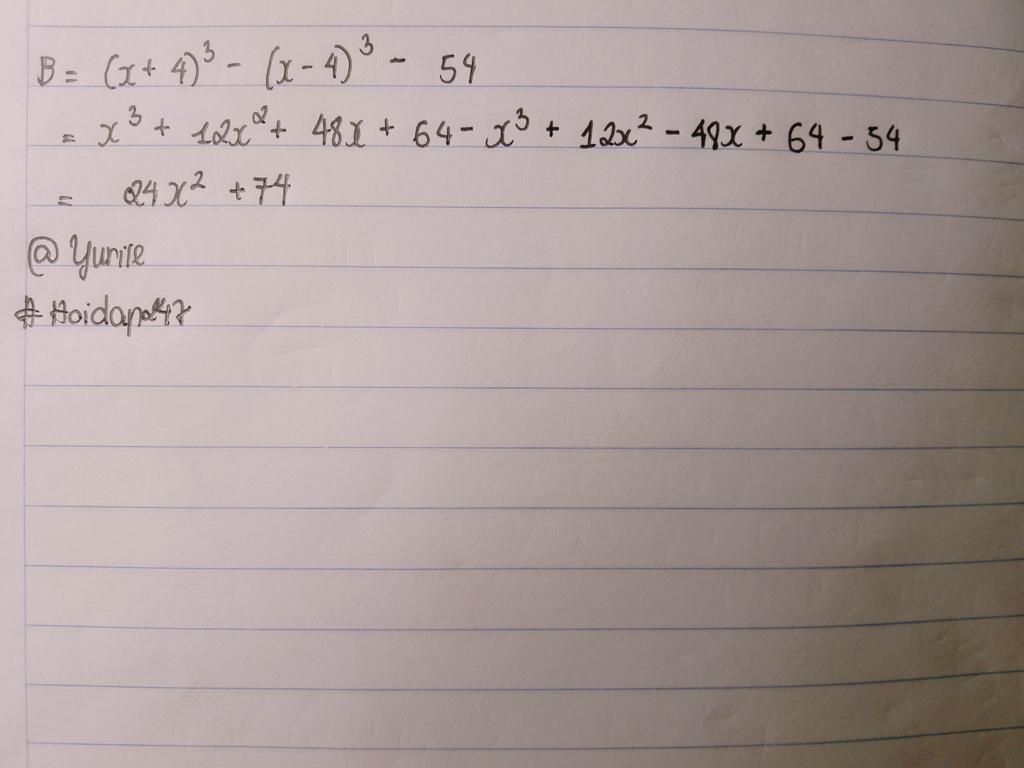 B = (x + 4)³ - (x - 4)³ - 54
= x³ + 12x² + 48x + 64 - x³ + 12x² - 48x + 64 - 54
= 24x² + 74
@ Yunire
# Hoidap247